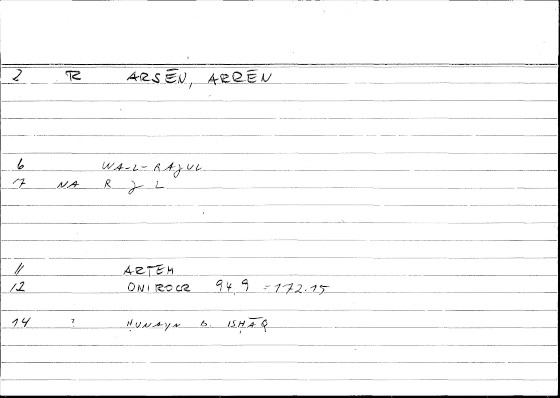 2 R ARSĒN, ARREN
6 WA-L-RAJUL
7 NA R J L
11 ARTEM
12 ONIROCR 94.9 = 172.15
14 ? ḤUNAYN B. ISḤĀQ